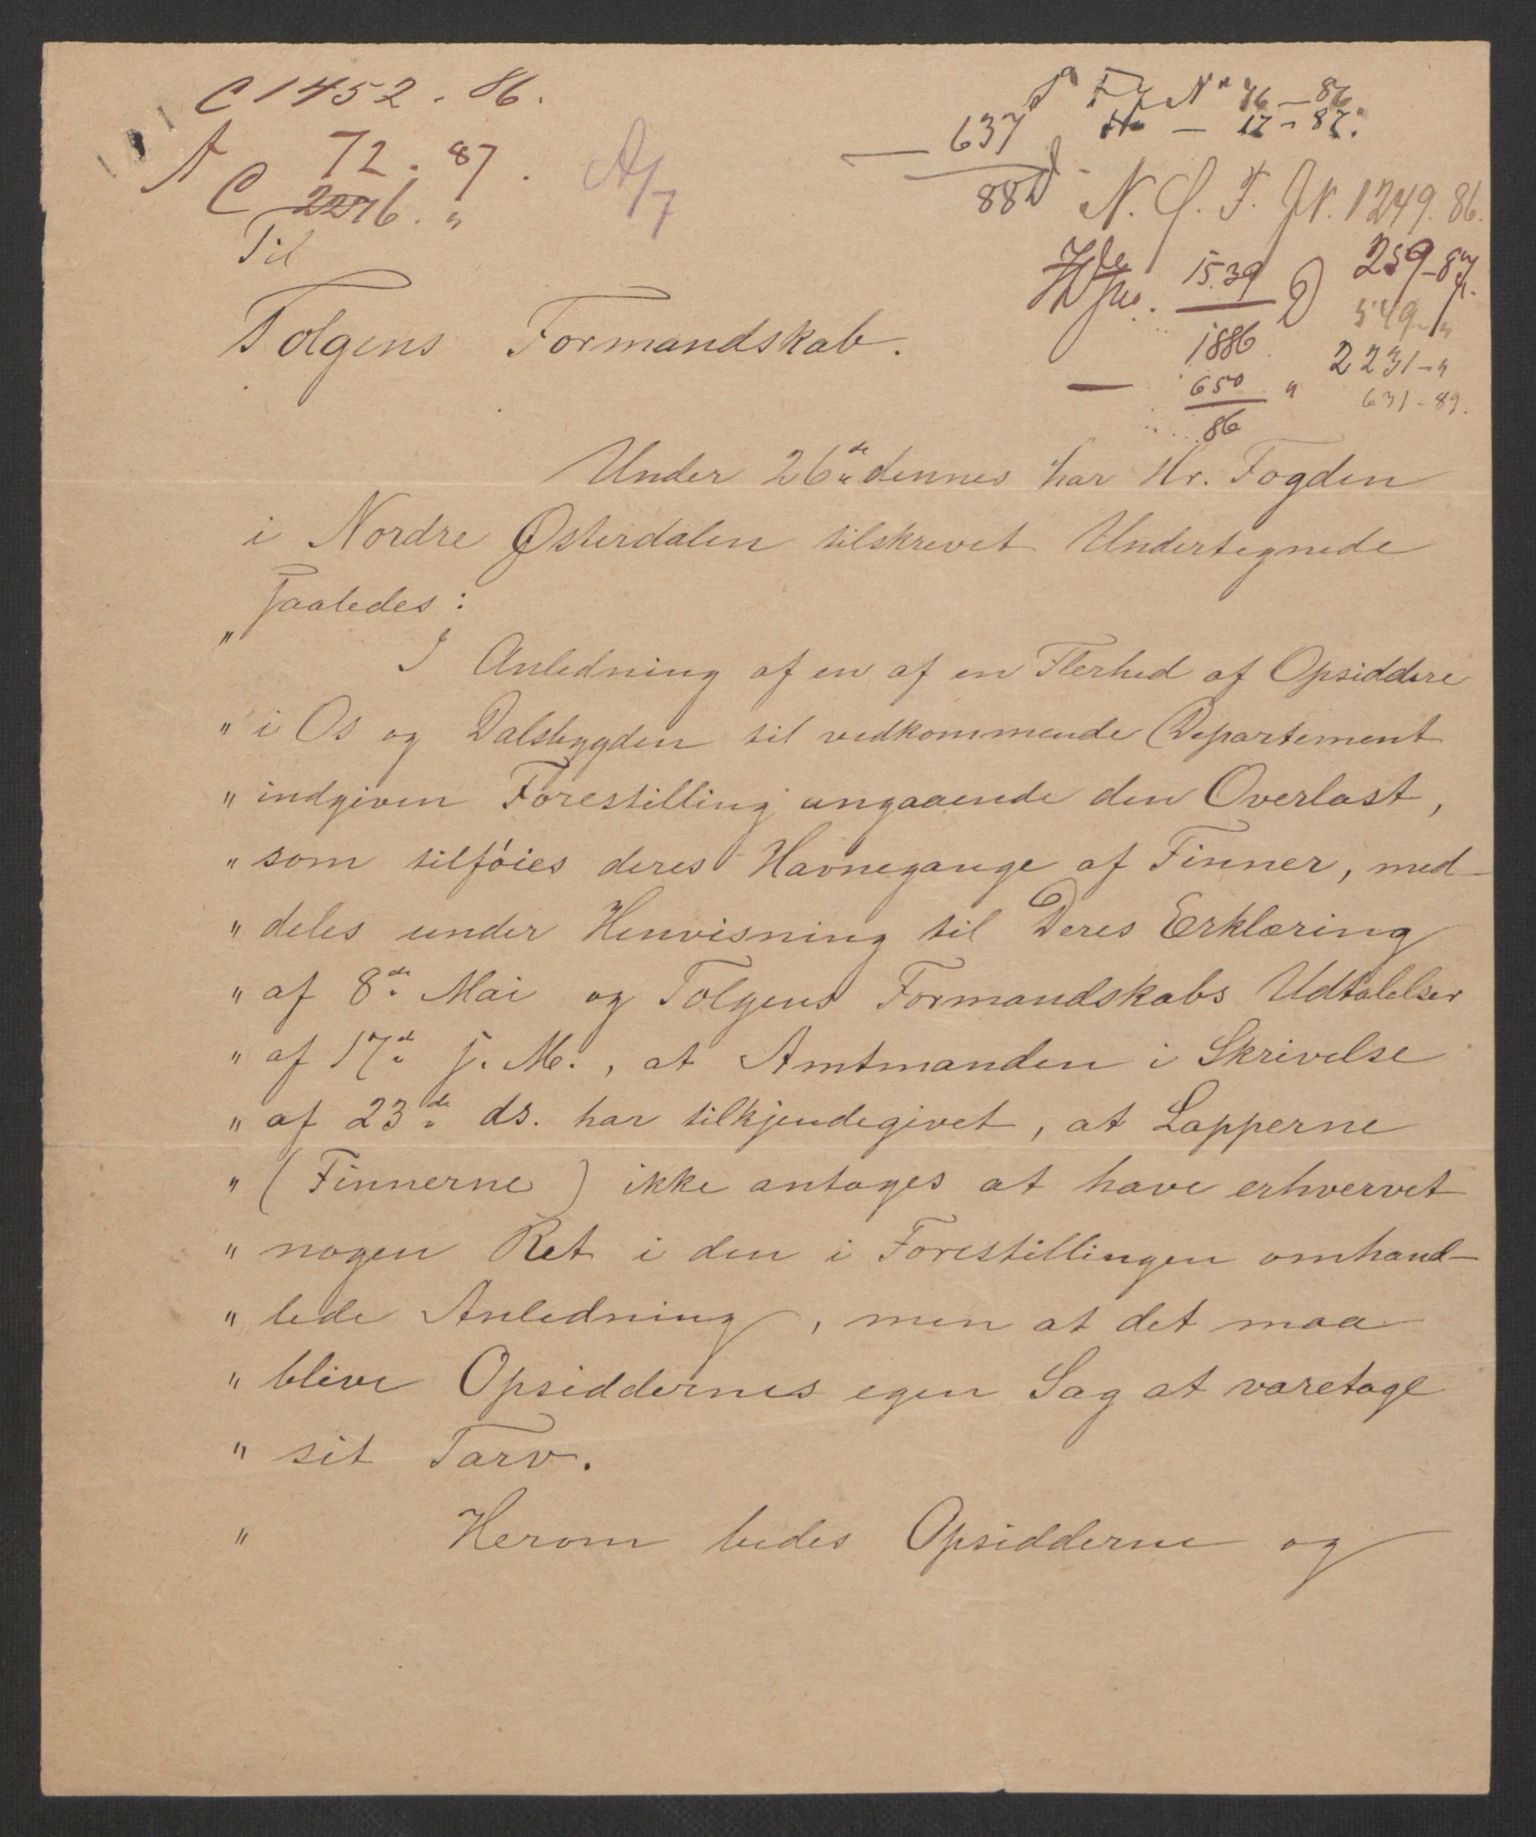 C 1452. 86.
A 72. 87.
C 2276. "
A/7
Fg N° 76 – 86.
637 — 12 – 87.
88
N. Ø. F. JN. 1249. 86.
1539 259–87
1886 549–"
650 " 2231–"
86 631–89.
Til
Tolgens Formandskab.
Under 26de dennes har Hr. Fogden
i Nordre Østerdalen tilskrevet Undertegnede
saaledes:
" I Anledning af en af en Flerhed af Opsiddere
" i Os og Dalsbygden til vedkommende Departement
" indgiven Forestilling angaaende den Overlast,
" som tilføies deres Havnegange af Finner, med-
" deles under Henvisning til Deres Erklæring
" af 8de Mai og Tolgens Formandskabs Udtalelser
" af 17de f. M., at Amtmanden i Skrivelse
" af 23de ds. har tilkjendegivet, at Lapperne
" (Finnerne) ikke antages at have erhvervet
" nogen Ret i den i Forestillingen omhand-
" lede Anledning, men at det maa
" blive Opsiddernes egen Sag at varetage
" sit Tarv.
" Herom bedes Opsidderne og